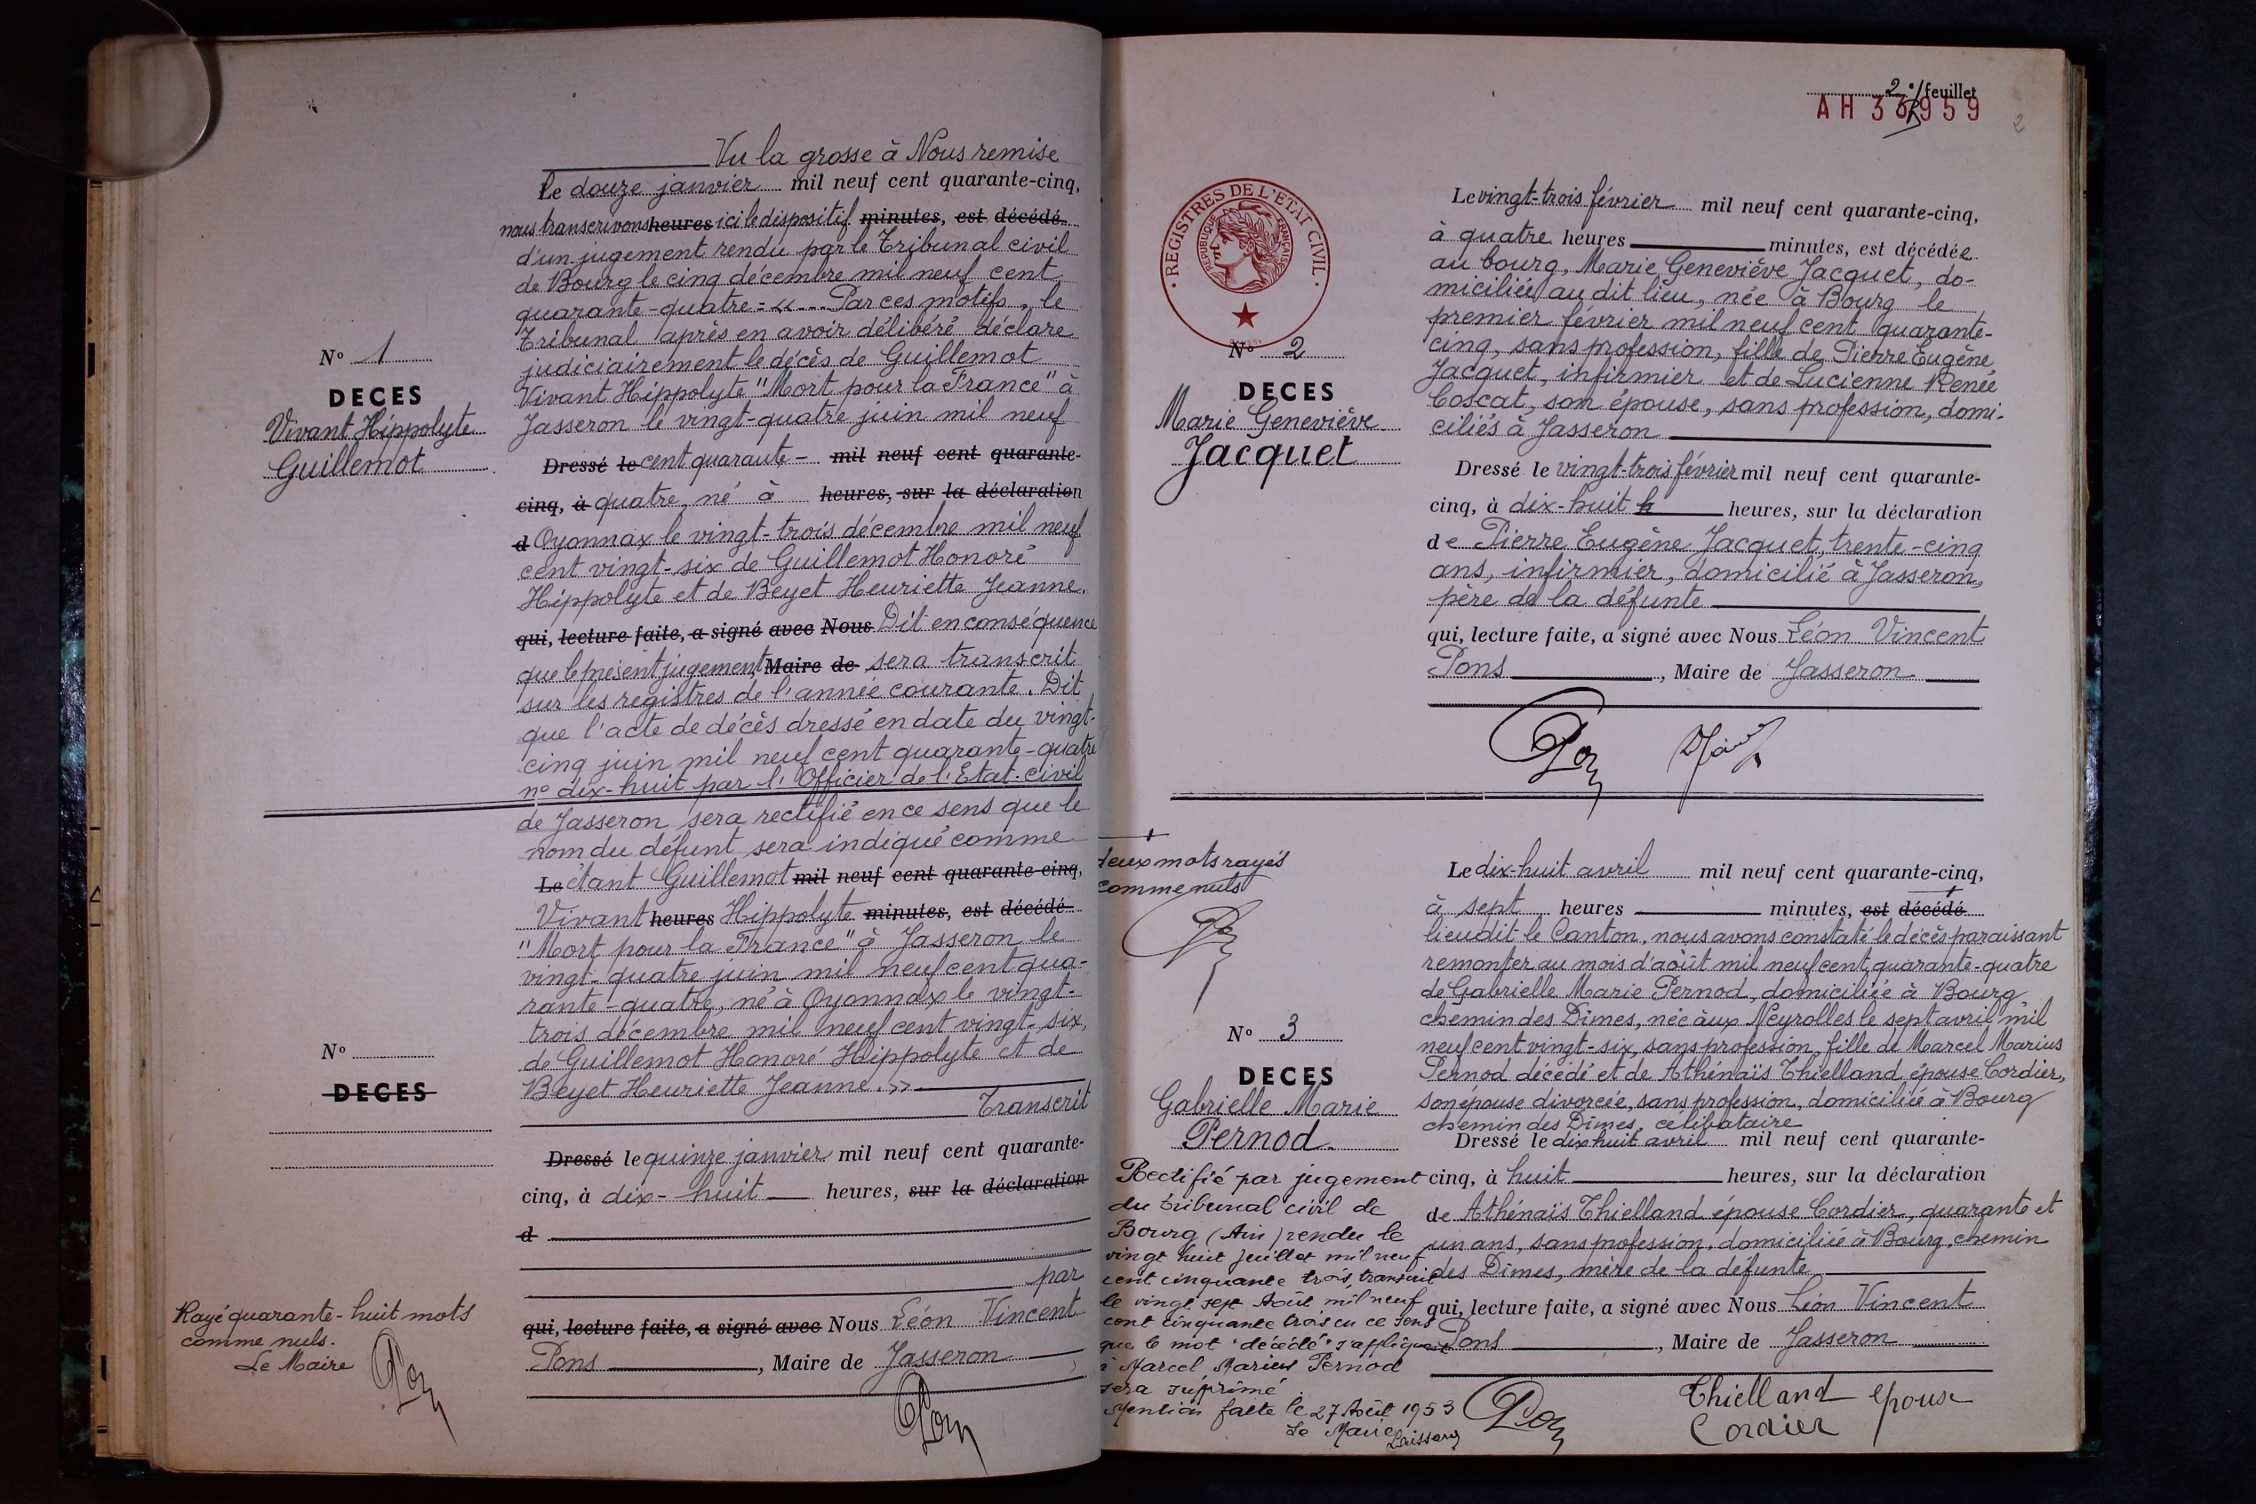 Vu la grosse à Nous remise
Le douze janvier mil neuf cent quarante-cinq,
nous transcrivons heures ici le dispositif minutes, est décédé
d'un jugement rendu par le Tribunal civil
de Bourg le cinq décembre mil neuf cent
quarante-quatre = «... Par ces motifs, le
Tribunal après en avoir délibéré déclare
judiciairement le décès de Guillemot
Vivant Hippolyte "Mort pour la France" à
Jasseron le vingt-quatre juin mil neuf
N° 1
DECES
Vivant Hippolyte
Guillemot
Dressé le cent quarante- mil neuf cent quarante-
cinq, à quatre, né à heures, sur la déclaration
d Oyonnax le vingt-trois décembre mil neuf
cent vingt-six de Guillemot Honoré
Hippolyte et de Beyet Henriette Jeanne.
qui, lecture faite, a signé avec Nous Dit en conséquence
que le présent jugement Maire de sera transcrit
sur les registres de l'année courante. Dit
que l'acte de décès dressé en date du vingt-
cinq juin mil neuf cent quarante-quatre
n° dix-huit par l'Officier de l'Etat-civil
de Jasseron sera rectifié en ce sens que le
nom du défunt sera indiqué comme
Le étant Guillemot mil neuf cent quarante-cinq,
Vivant heures Hippolyte minutes, est décédé
"Mort pour la France" à Jasseron le
vingt-quatre juin mil neuf cent qua-
rante-quatre, né à Oyonnax le vingt-
trois décembre mil neuf cent vingt-six,
de Guillemot Honoré Hippolyte et de
Beyet Henriette Jeanne. »
N°
DECES
Transcrit
Dressé le quinze janvier mil neuf cent quarante-
cinq, à dix-huit heures, sur la déclaration
d
par
qui, lecture faite, a signé avec Nous Léon Vincent
Pons, Maire de Jasseron
Rayé quarante-huit mots
comme nuls.
Le Maire
Pons
Pons
2e feuillet
AH 33959
2
REGISTRES DE L'ETAT CIVIL
REPUBLIQUE FRANÇAISE
N° 2
DECES
Marie Geneviève
Jacquet
Le vingt-trois février mil neuf cent quarante-cinq,
à quatre heures minutes, est décédée
au bourg, Marie Geneviève Jacquet, do-
miciliée au dit lieu, née à Bourg le
premier février mil neuf cent quarante-
cinq, sans profession, fille de Pierre Eugène
Jacquet, infirmier et de Lucienne Renée
Coscat, son épouse, sans profession, domi-
ciliés à Jasseron
Dressé le vingt-trois février mil neuf cent quarante-
cinq, à dix-huit h heures, sur la déclaration
de Pierre Eugène Jacquet, trente-cinq
ans, infirmier, domicilié à Jasseron,
père de la défunte
qui, lecture faite, a signé avec Nous Léon Vincent
Pons, Maire de Jasseron
Pons
deux mots rayés
comme nuls
N° 3
DECES
Gabrielle Marie
Pernod.
Le dix-huit avril mil neuf cent quarante-cinq,
à sept heures minutes, est décédé
lieudit le Canton, nous avons constaté le décès paraissant
remonter au mois d'août mil neuf cent quarante-quatre
de Gabrielle Marie Pernod, domiciliée à Bourg,
chemin des Dîmes, née aux Neyrolles le sept avril mil
neuf cent vingt-six, sans profession, fille de Marcel Marius
Pernod décédé et de Athénaïs Thielland épouse Cordier,
son épouse divorcée, sans profession, domiciliée à Bourg
chemin des Dîmes, célibataire
Dressé le dix huit avril mil neuf cent quarante-
cinq, à huit heures, sur la déclaration
de Athénaïs Thielland épouse Cordier, quarante et
un ans, sans profession, domiciliée à Bourg, chemin
des Dîmes, mère de la défunte
qui, lecture faite, a signé avec Nous Léon Vincent
Pons, Maire de Jasseron
Rectifié par jugement
du tribunal civil de
Bourg (Ain) rendu le
vingt huit juillet mil neuf
cent cinquante trois, transcrit
le vingt sept Août mil neuf
cent cinquante trois en ce sens
que le mot "décédé" s'appliquant
à Marcel Marius Pernod
sera suprimé
Mention faite le 27 Août 1953
Le Maire
Pons
Thielland epouse
Cordier